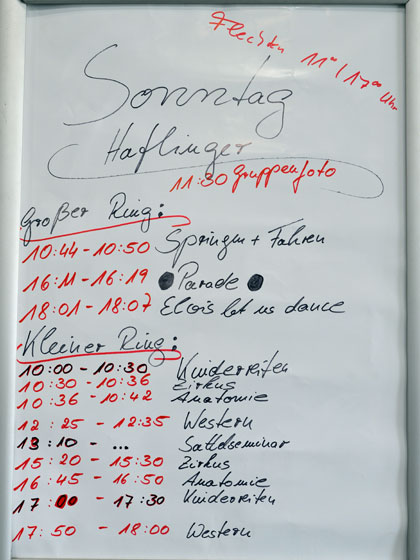 Flechten 11°° / 17°° Uhr
Sonntag
Haflinger
11:30 Gruppenfoto
Großer Ring:
10:44 - 10:50 Springen + Fahren
16:11 - 16:19 Parade
18:01 - 18:07 Elois let us dance
Kleiner Ring:
10:00 - 10:30 Kinderreiten
10:30 - 10:36 Zirkus
10:36 - 10:42 Anatomie
12:25 - 12:35 Western
13:10 - ... Sattelseminar
15:20 - 15:30 Zirkus
16:45 - 16:50 Anatomie
17:00 - 17:30 Kinderreiten
17:50 - 18:00 Western